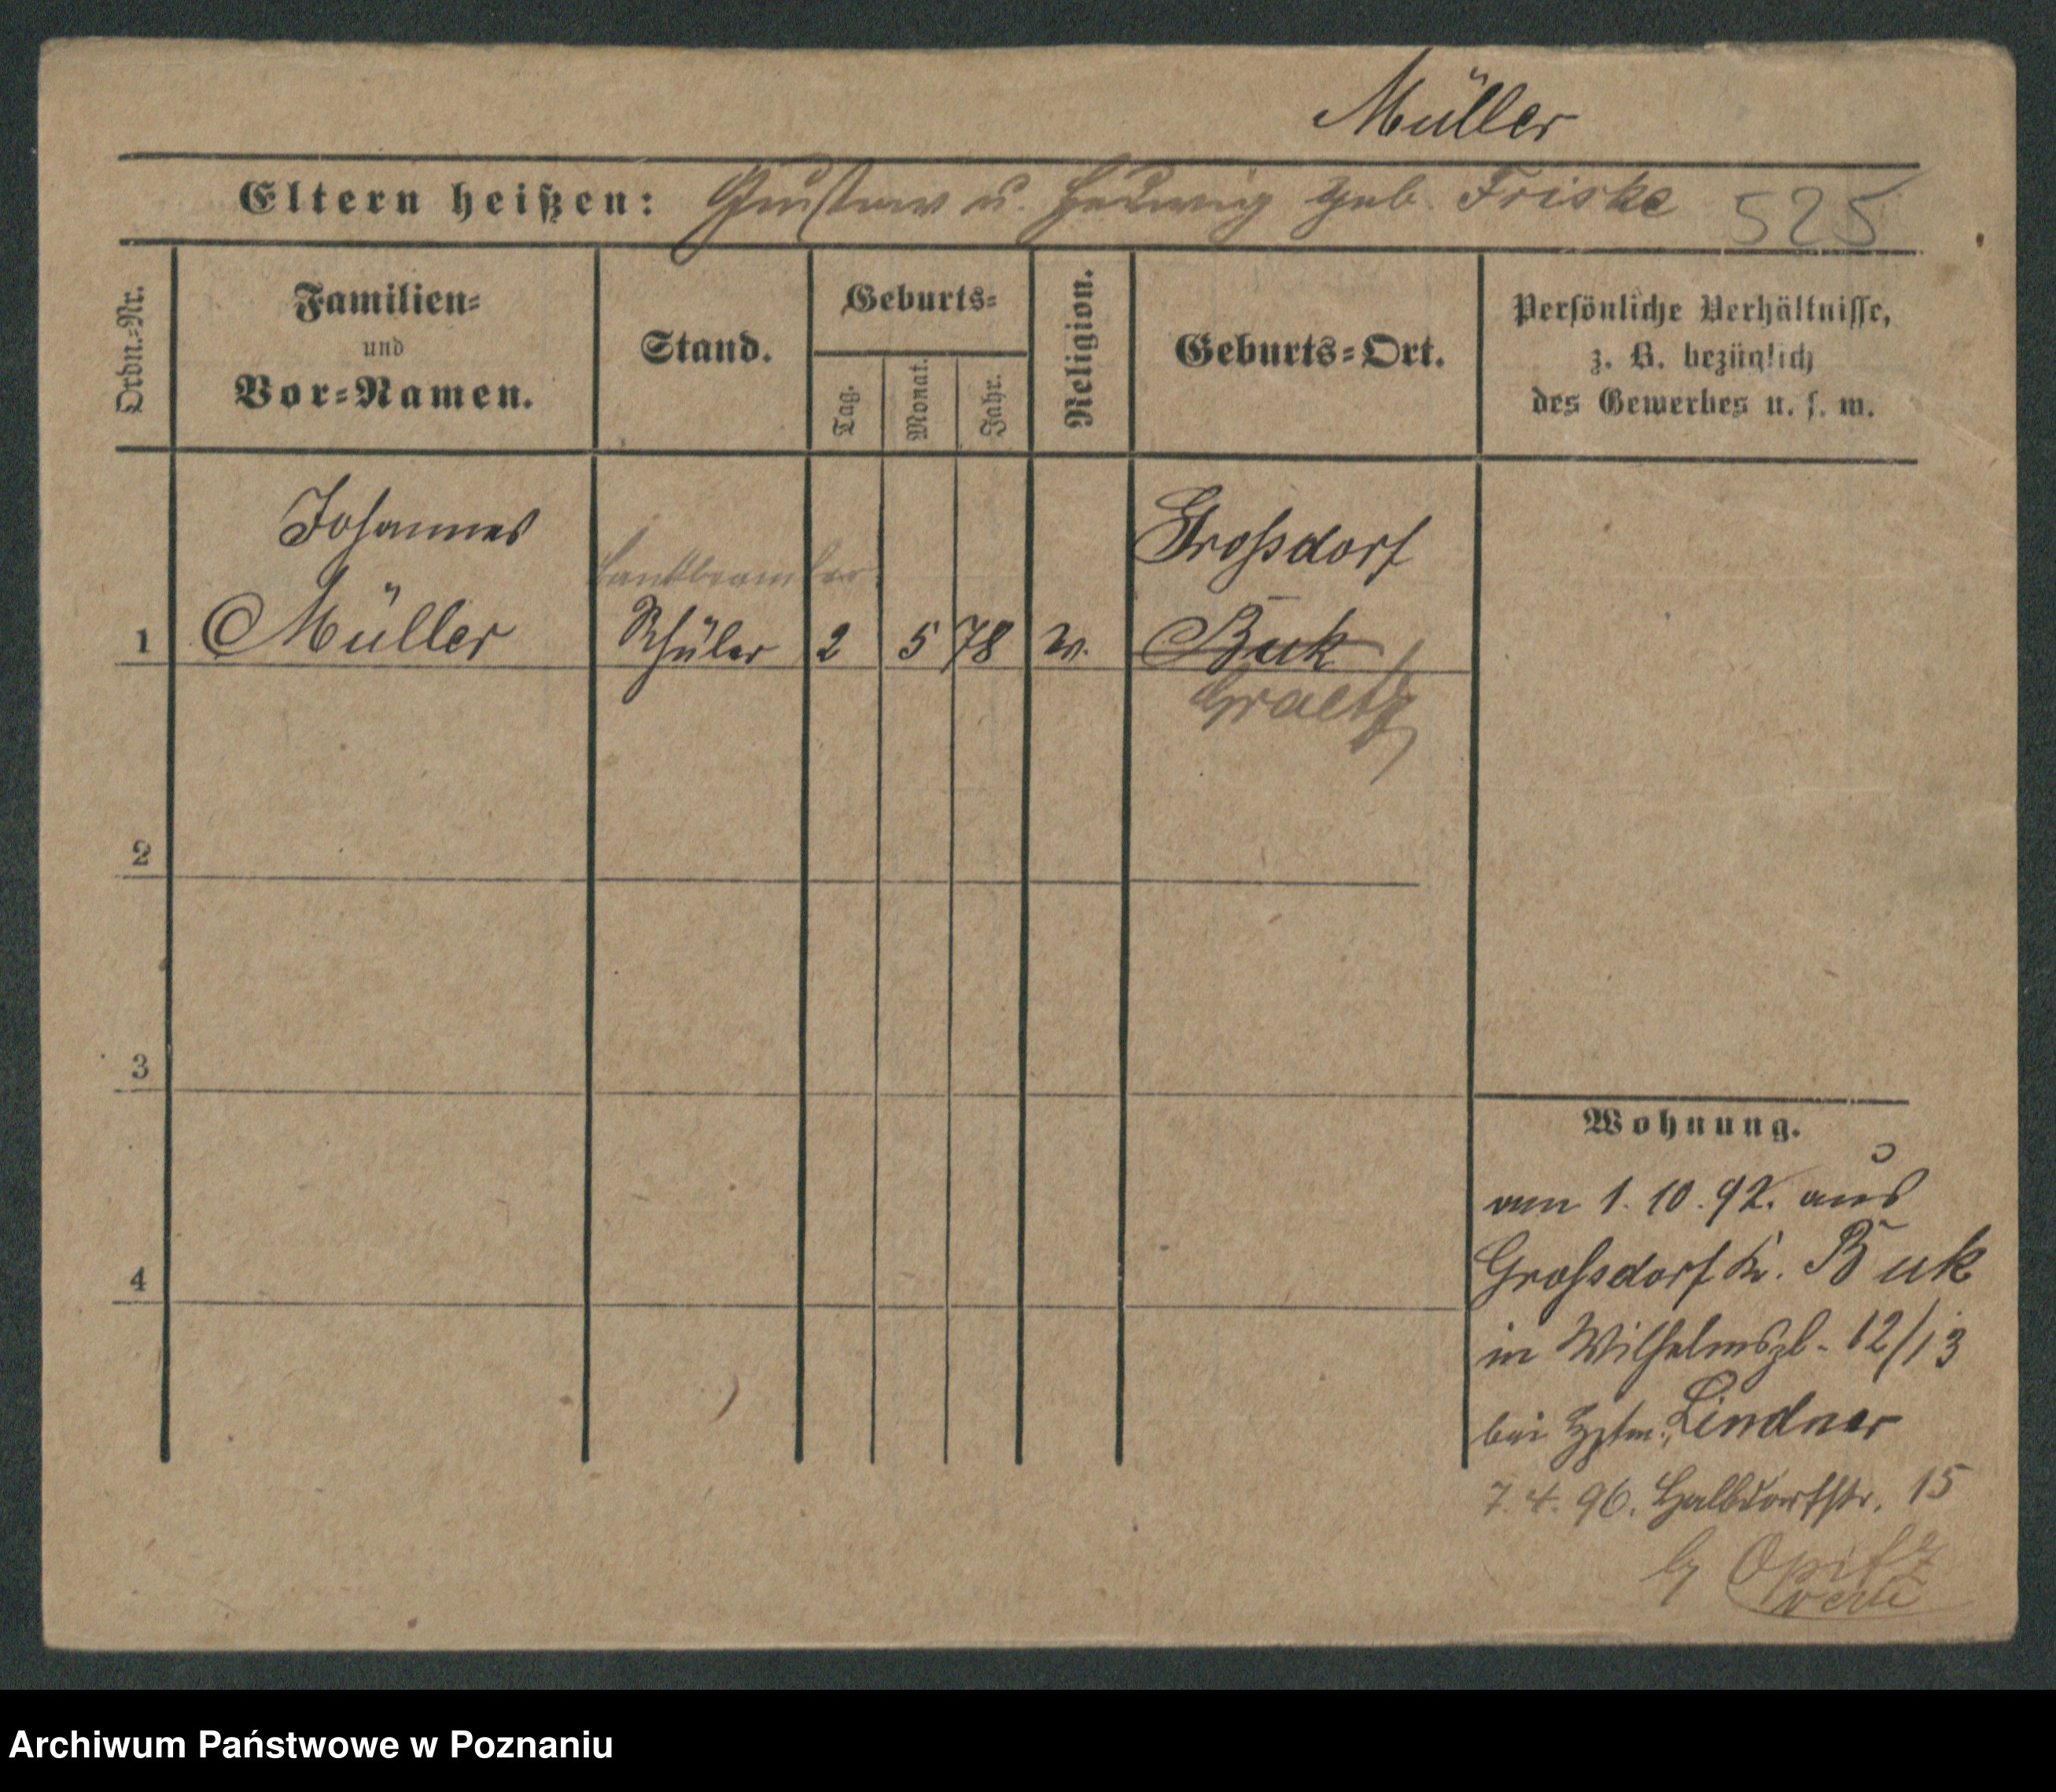 Müller
Eltern heißen: Gustav u. Hedwig geb. Friske 525
Ordn.-Nr.
Familien-
und
Vor-Namen.
Stand.
Geburts-
Tag.
Monat.
Jahr.
Religion.
Geburts-Ort.
Persönliche Verhältnisse,
z. B. bezüglich
des Gewerbes u. s. w.
Johannes
Großdorf
Bankbeamter
1 Müller Schüler 2 5 78 Buk
Graetz
2
3
4
Wohnung.
am 1. 10. 92. aus
Großdorf Kr. Buk
in Wilhelmspl. 12/13
bei Hptm. Lindner
7. 4. 96. Halbdorfstr. 15
Opitz
Archiwum Państwowe w Poznaniu